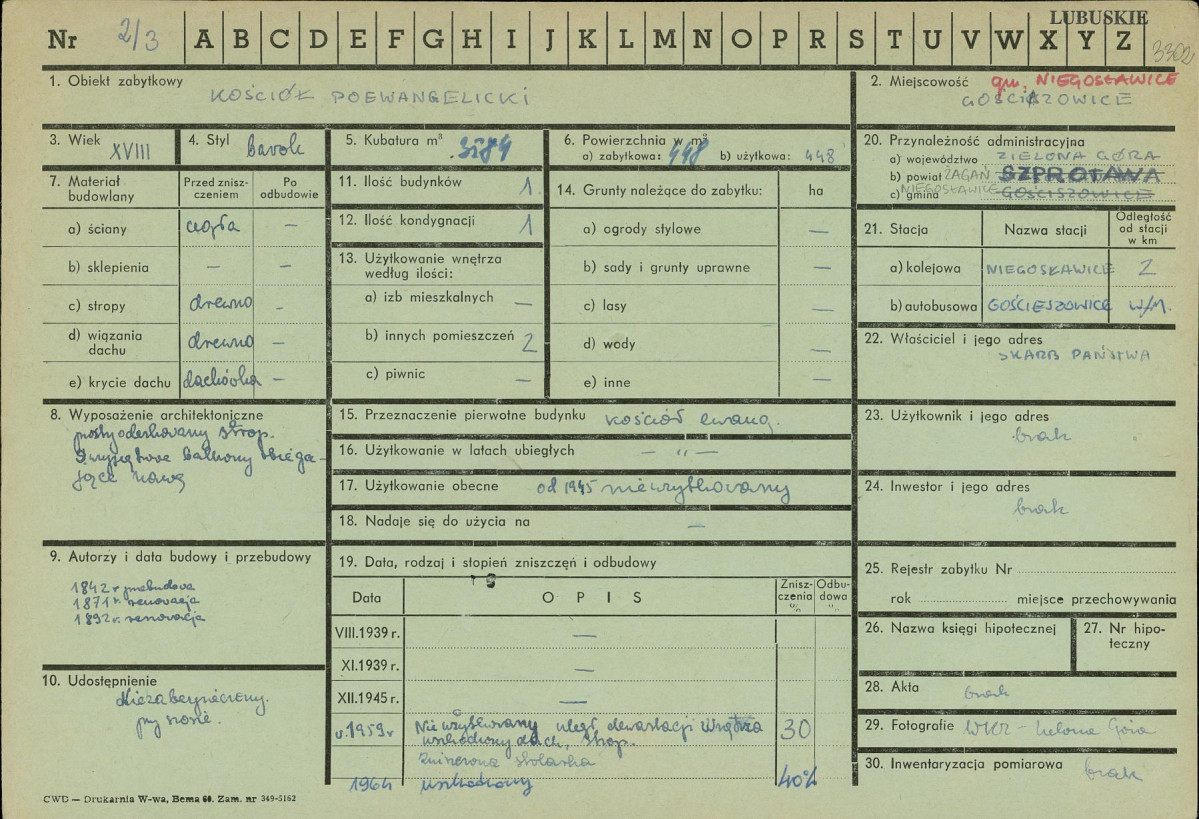 LUBUSKIE
Nr 2/3 A B C D E F G H I J K L M N O P R S T U V W X Y Z 3302
1. Obiekt zabytkowy
KOŚCIÓŁ POEWANGELICKI
2. Miejscowość gm. NIEGOSŁAWICE
3. Wiek XVIII
4. Styl barok
5. Kubatura m³ 3184
6. Powierzchnia w m²
a) zabytkowa: 448 b) użytkowa: 448
20. Przynależność administracyjna
a) województwo ZIELONA GÓRA
b) powiat ŻAGAŃ SZPROTAWA
c) gmina NIEGOSŁAWICE GOŚCISZOWICE
7. Materiał budowlany
Przed zniszczeniem
Po odbudowie
a) ściany cegła —
b) sklepienia — —
c) stropy drewno —
d) wiązania dachu drewno —
e) krycie dachu dachówka —
11. Ilość budynków 1
12. Ilość kondygnacji 1
13. Użytkowanie wnętrza według ilości:
a) izb mieszkalnych —
b) innych pomieszczeń 2
c) piwnic —
14. Grunty należące do zabytku: ha
a) ogrody stylowe —
b) sady i grunty uprawne —
c) lasy —
d) wody —
e) inne —
21. Stacja Nazwa stacji Odległość od stacji w km
a) kolejowa NIEGOSŁAWICE 2
b) autobusowa GOŚCIESZOWICE w/m.
22. Właściciel i jego adres
SKARB PAŃSTWA
8. Wyposażenie architektoniczne
strop.
balkony obiega-
jące nawę
15. Przeznaczenie pierwotne budynku kościół ewang.
16. Użytkowanie w latach ubiegłych — „ —
17. Użytkowanie obecne od 1945 nieużytkowany
18. Nadaje się do użycia na —
23. Użytkownik i jego adres
brak
24. Inwestor i jego adres
brak
9. Autorzy i data budowy i przebudowy
1842 r. przebudowa
1871 r. renowacja
1892 r. renowacja
10. Udostępnienie
Niezabezpieczony.
przy szosie.
19. Data, rodzaj i stopień zniszczeń i odbudowy
Data OPIS Zniszczenia % Odbudowa %
VIII.1939 r. —
XI.1939 r. —
XII.1945 r. —
1959 r Nieużytkowany uległ dewastacji 30
uszkodzony dach, strop.
zniszczona stolarka
1964 uszkodzony 40%
25. Rejestr zabytku Nr
rok miejsce przechowywania
26. Nazwa księgi hipotecznej
27. Nr hipoteczny
28. Akta brak
29. Fotografie WKZ - Zielona Góra
30. Inwentaryzacja pomiarowa brak
CWD — Drukarnia W-wa, Bema 60. Zam. nr 349-5162